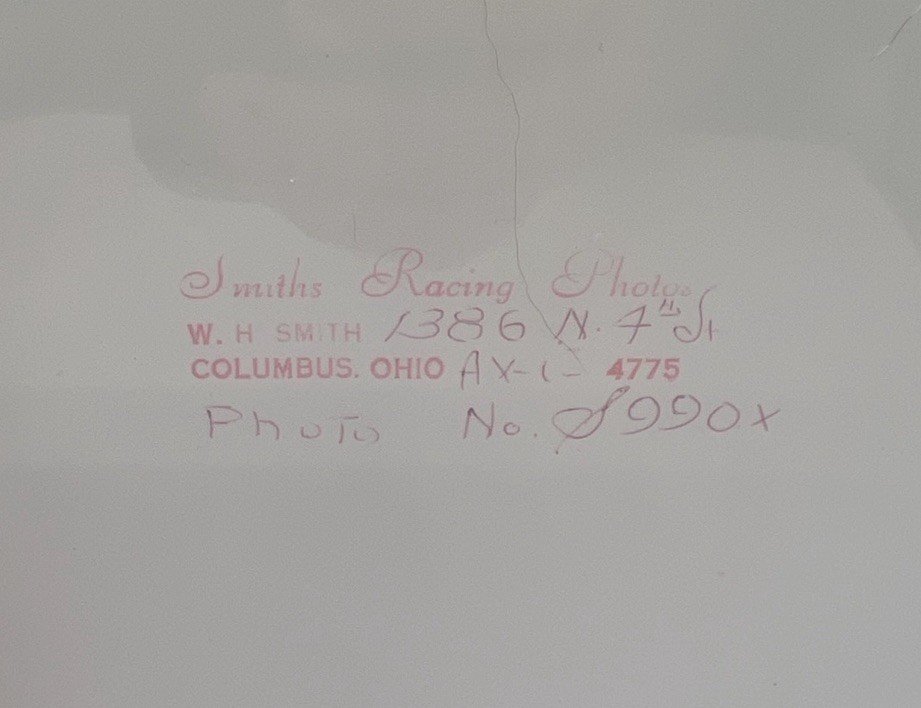 Smiths Racing Photos
W. H SMITH 1386 N. 4th St
COLUMBUS. OHIO AX-1- 4775
Photo No. S990X